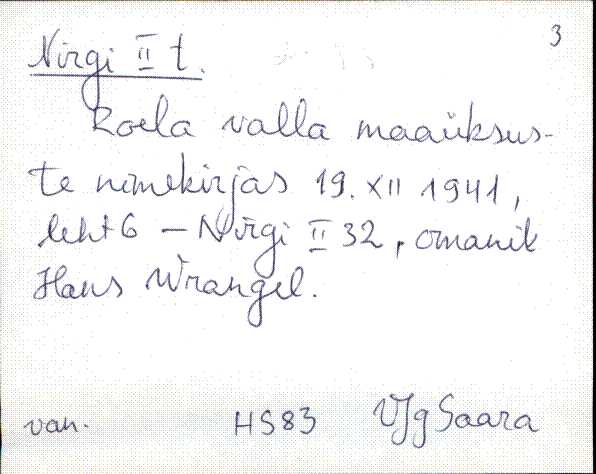 3
Nirgi II t.
Roela valla maaüksus-
te nimekirjas 19. XII 1941,
leht 6 – Nirgi II 32, omanik
Hans Wrangel.
van. HS83 VJg Saara